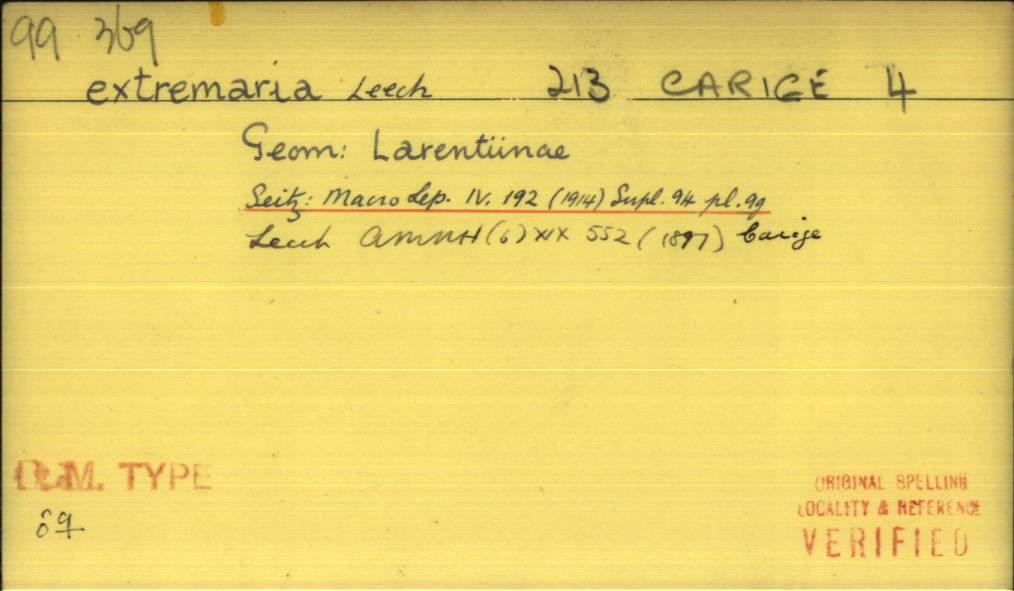 99 369
extremaria Leech 213 CARIGE 4
Geom: Larentiinae
Seitz: Macro Lep. IV. 192 (1914) Supl. 94 pl. 9g
Leech AMNH (6) XIX 552 (1897) Carige
B.M. TYPE
♂♀
ORIGINAL SPELLING
LOCALITY & REFERENCE
VERIFIED